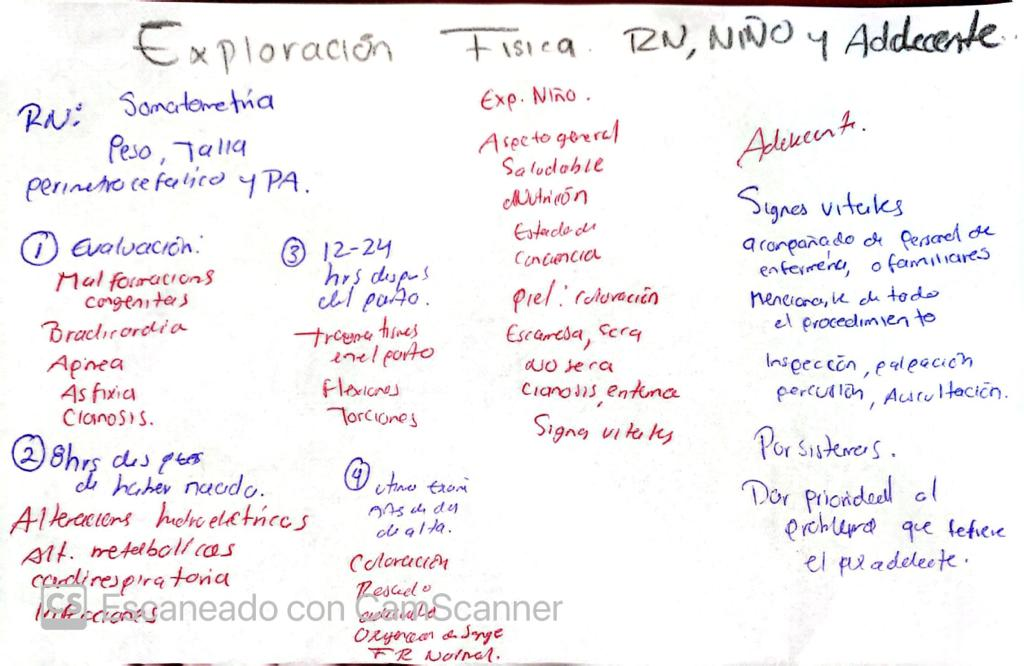 Exploración Física. RN, NIÑO y Addecente.
RN: Somatometría
Peso, Talla
perimetro cefalico y PA.
① Evaluación:
Malformacions
congenitas
Bradicardia
Apnea
Asfixia
Cianosis.
② 8hrs des pues
de haber nacido.
Alteracions hidroeletricas
Alt. metalbolicas
cardirespiratoria
Infecciones
③ 12-24
hrs despus
del parto.
traumatismos
en el parto
flexiones
Torciones
④
de alta.
Coloración
Pesado
Oxygenacion
FR Normal.
Exp. Niño.
Aspecto general
Saludable
Nutrición
Estado de
Conciencia
Piel: coloración
Escamosa, seca
no seca
cianosis,
Signos vitales
Adolecente.
Signos vitales
acompañado de personal de
enfermeria, o familiares
Mencionarle de todo
el procedimiento
Inspección, palpación
percusión, Auscultación.
Por sistemas.
Dar prioridad al
problema que refiere
el
CS Escaneado con CamScanner